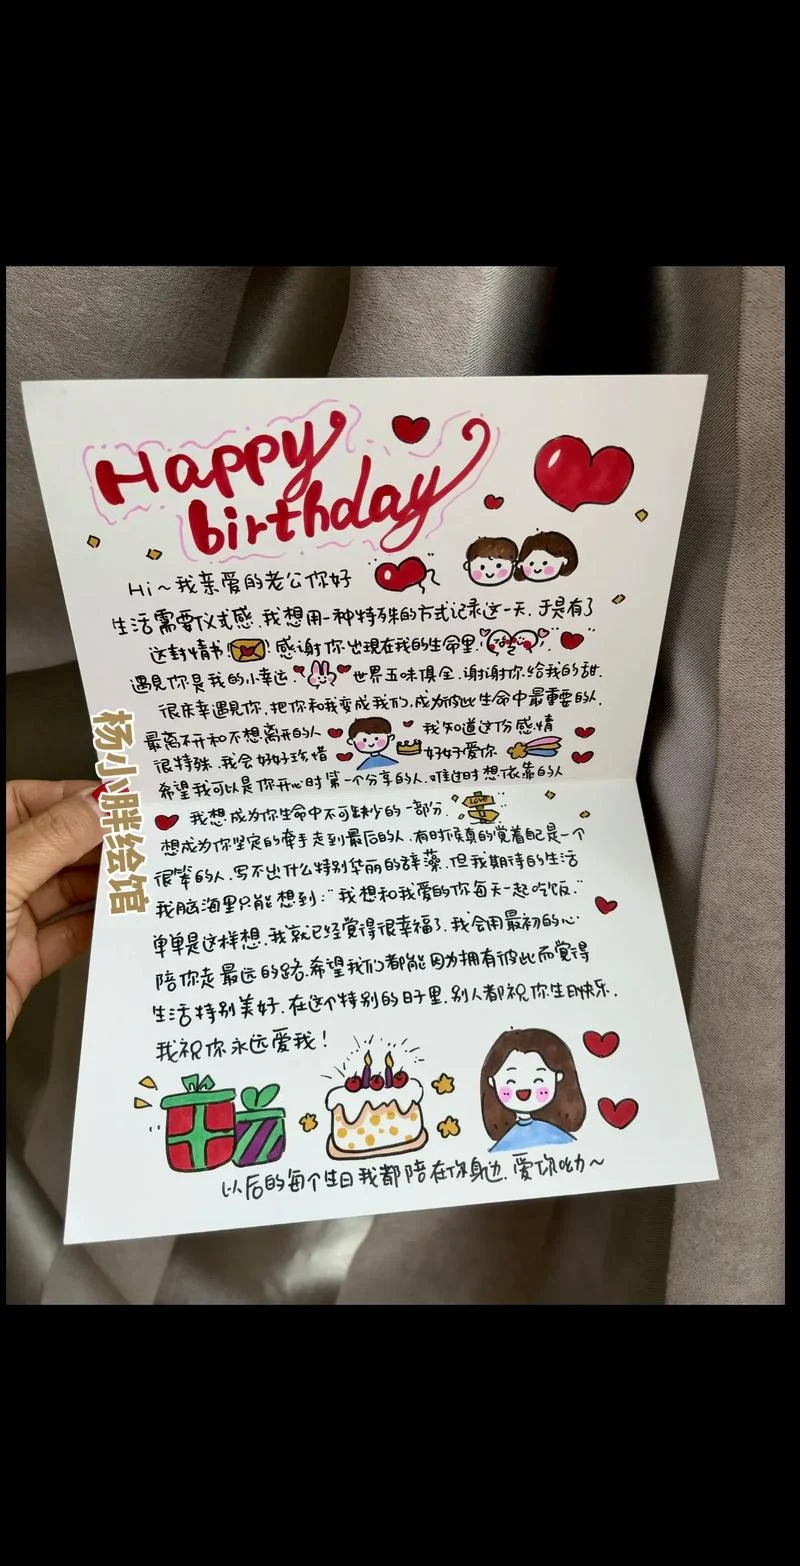 Happy
birthday
Hi~我亲爱的老公你好
生活需要仪式感.我想用一种特殊的方式记录这一天.于是有了
这封情书!感谢你出现在我的生命里.
遇見你是我的小幸运.世界五味俱全.谢谢你.给我的甜.
很庆幸遇見你.把你和我变成我们.成为彼此生命中最重要的人.
最离不开和不想离开的人 我知道这份感情
很特殊.我会好好珍惜 好好爱你
希望我可以是你开心时第一个分享的人.难过时想依靠的人
我想成为你生命中不可缺少的一部分.
LOVE
想成为你坚定的牵手走到最后的人.有时候真的觉着自己是一个
很笨的人.写不出什么特别华丽的辞藻.但我期待的生活
我脑海里只能想到:"我想和我爱的你每天一起吃饭."
单单是这样想.我就已经觉得很幸福了.我会用最初的心
陪你走最远的路.希望我们都能因为拥有彼此而觉得
生活特别美好.在这个特别的日子里.别人都祝你生日快乐.
我祝你永远爱我!
以后的每个生日我都陪在你身边.爱你呦~
杨小胖绘馆